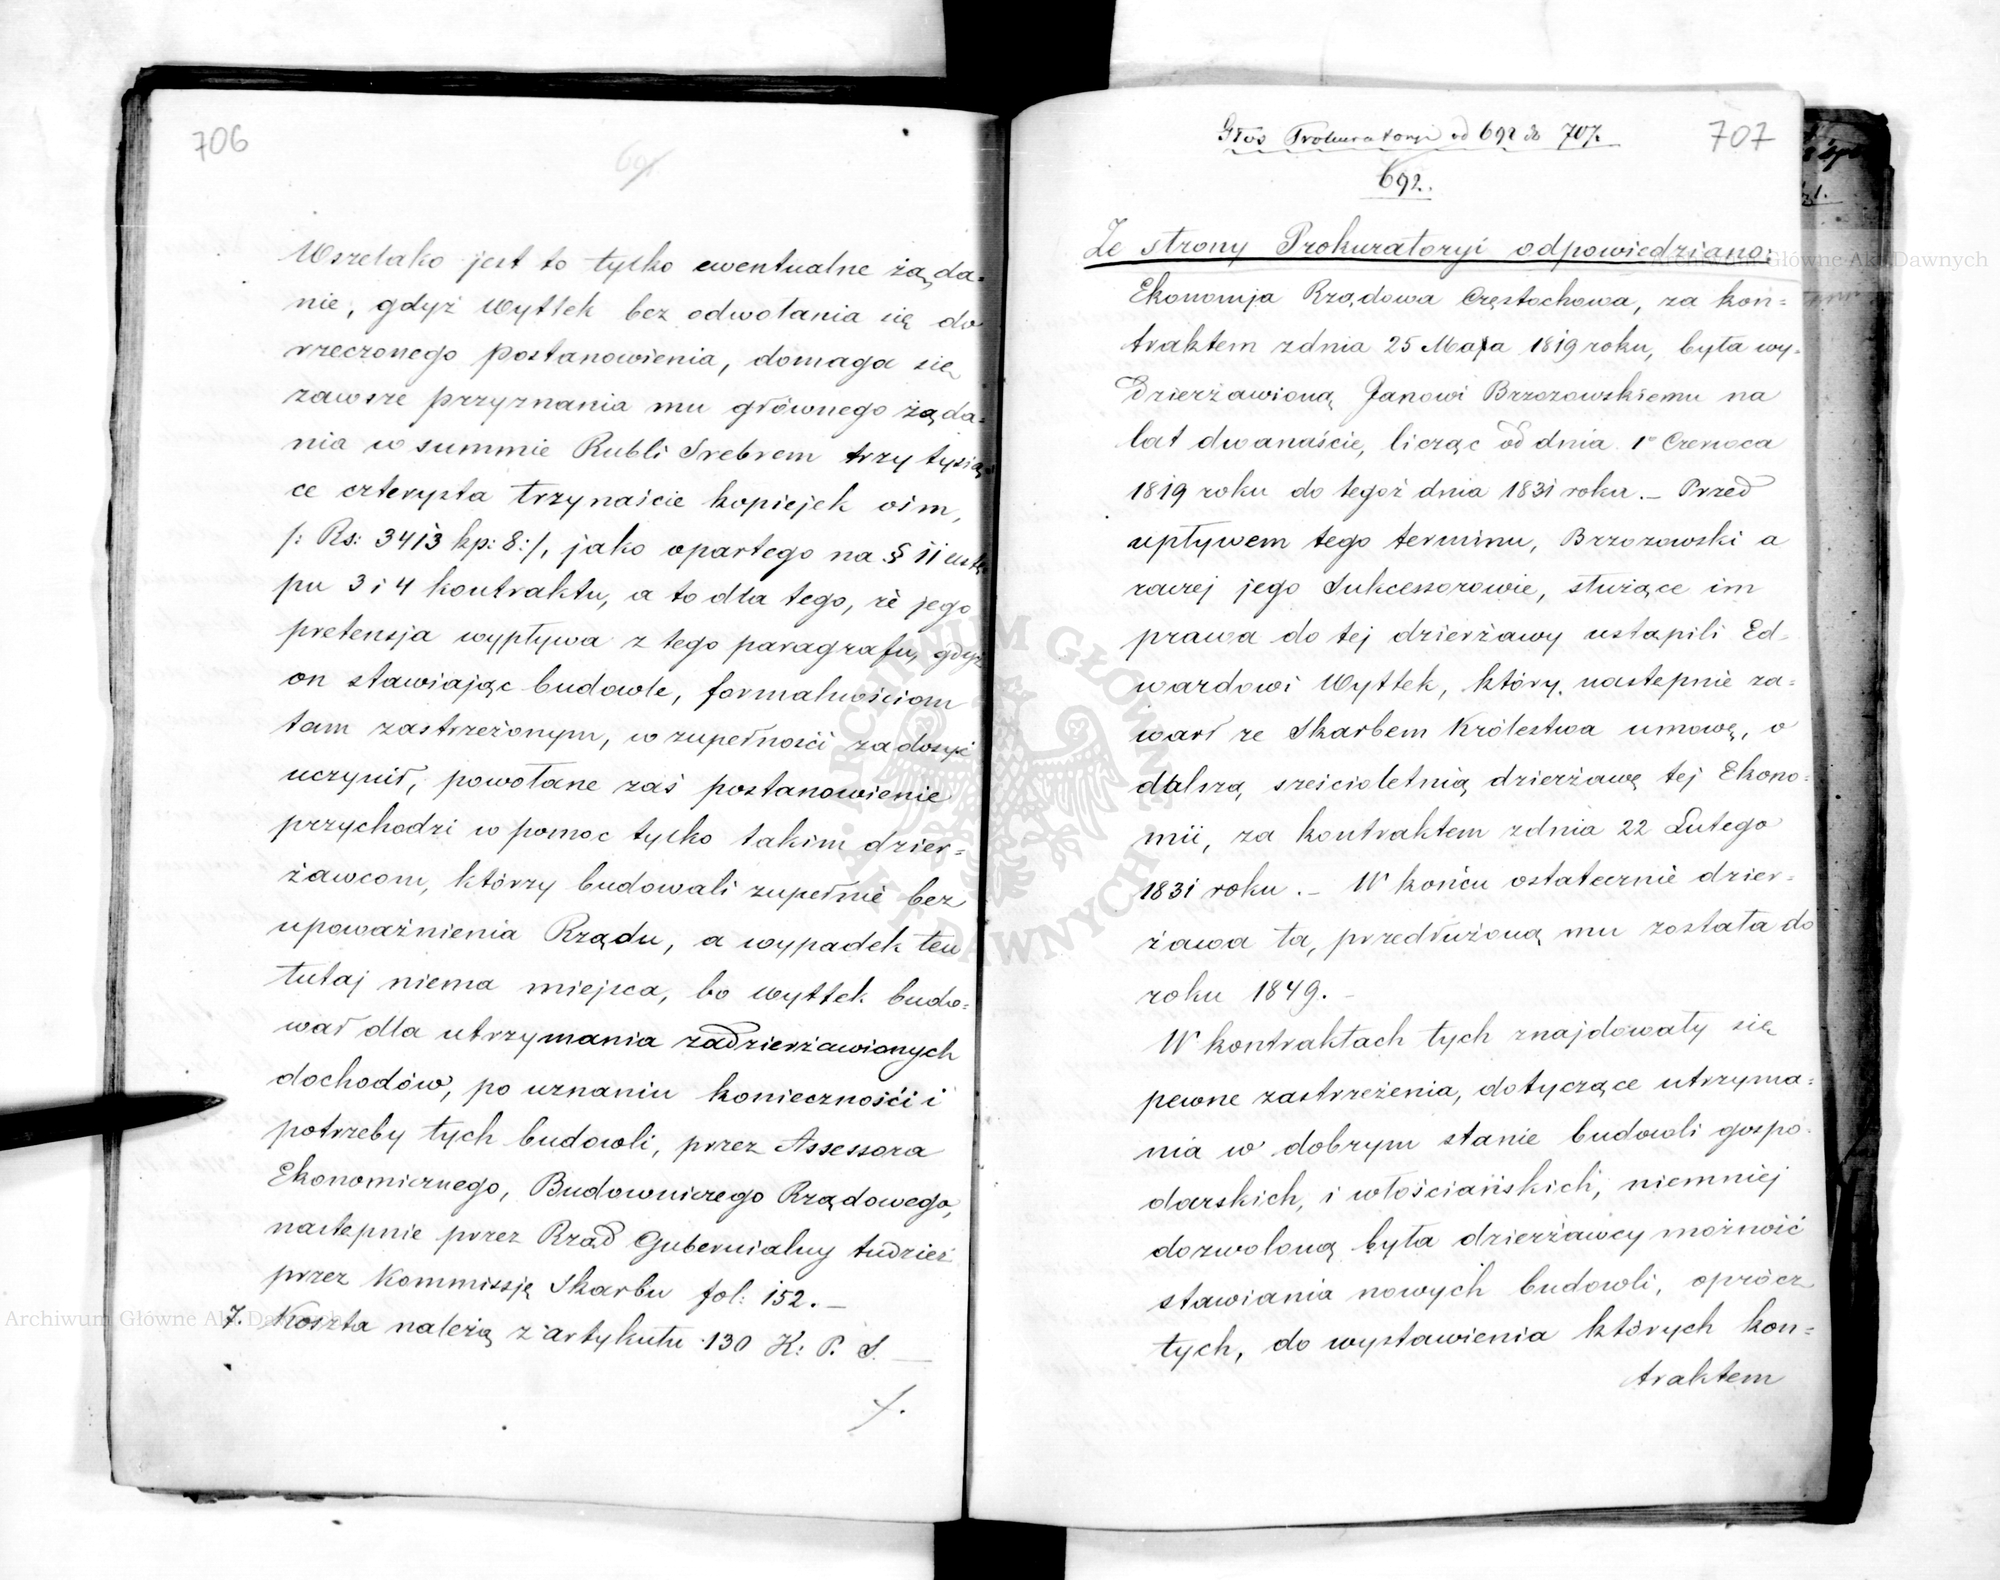 706
691
Wszelako jest to tylko ewentualne żąda-
nie, gdyż Wyttek bez odwołania się do
rzeczonego postanowienia, domaga się
zawsze przyznania mu głównego żąda-
nia w summie Rubli Srebrem trzy tysią-
ce czterysta trzynaście kopiejek ośm,
/: Rs: 3413 kp: 8:/, jako opartego na § 11 ustę-
pu 3 i 4 kontraktu, a to dla tego, że jego
pretensja wypływa z tego paragrafu, gdyż
on stawiając budowle, formalnościom
tam zastrzeżonym, w zupełności zadosyć
uczynił, powołane zaś postanowienie
przychodzi w pomoc tylko takim dzier-
żawcom, którzy budowali zupełnie bez
upoważnienia Rządu, a wypadek ten
tutaj niema miejsca, bo Wyttek budo-
wał dla utrzymania zadzierżawionych
dochodów, po uznaniu konieczności i
potrzeby tych budowli, przez Assessora
Ekonomicznego, Budowniczego Rządowego,
następnie przez Rząd Gubernialny tudzież
przez Kommissję Skarbu fol: 152. –
7. Koszta należą z artykułu 130 K: P. S. –
/.
Głos Prokuratoryi od 692 do 707.
707
692.
Ze strony Prokuratoryi odpowiedziano:
Ekonomja Rządowa Częstochowa, za kon-
traktem zdnia 25 Maja 1819 roku, była wy-
dzierżawioną Janowi Brzozowskiemu na
lat dwanaście, licząc od dnia 1º Czerwca
1819 roku do tegoż dnia 1831 roku. – Przed
upływem tego terminu, Brzozowski a
raczej jego Sukcessorowie, służące im
prawa do tej dzierżawy ustąpili Ed-
wardowi Wyttek, który, następnie za-
warł ze Skarbem Królestwa umowę, o
dalszą sześcioletnią dzierżawę tej Ekono-
mii, za kontraktem zdnia 22 Lutego
1831 roku. – W końcu ostatecznie dzier-
żawa ta, przedłużoną mu została do
roku 1849. –
W kontraktach tych znajdowały się
pewne zastrzeżenia, dotyczące utrzyma-
nia w dobrym stanie budowli gospo-
darskich, i włościańskich, niemniej
dozwoloną była dzierżawcy możność
stawiania nowych budowli, oprócz
tych, do wystawienia których kon-
traktem
Archiwum Główne Akt Dawnych
Archiwum Główne Akt Dawnych
ARCHIWUM GŁÓWNE AKT DAWNYCH